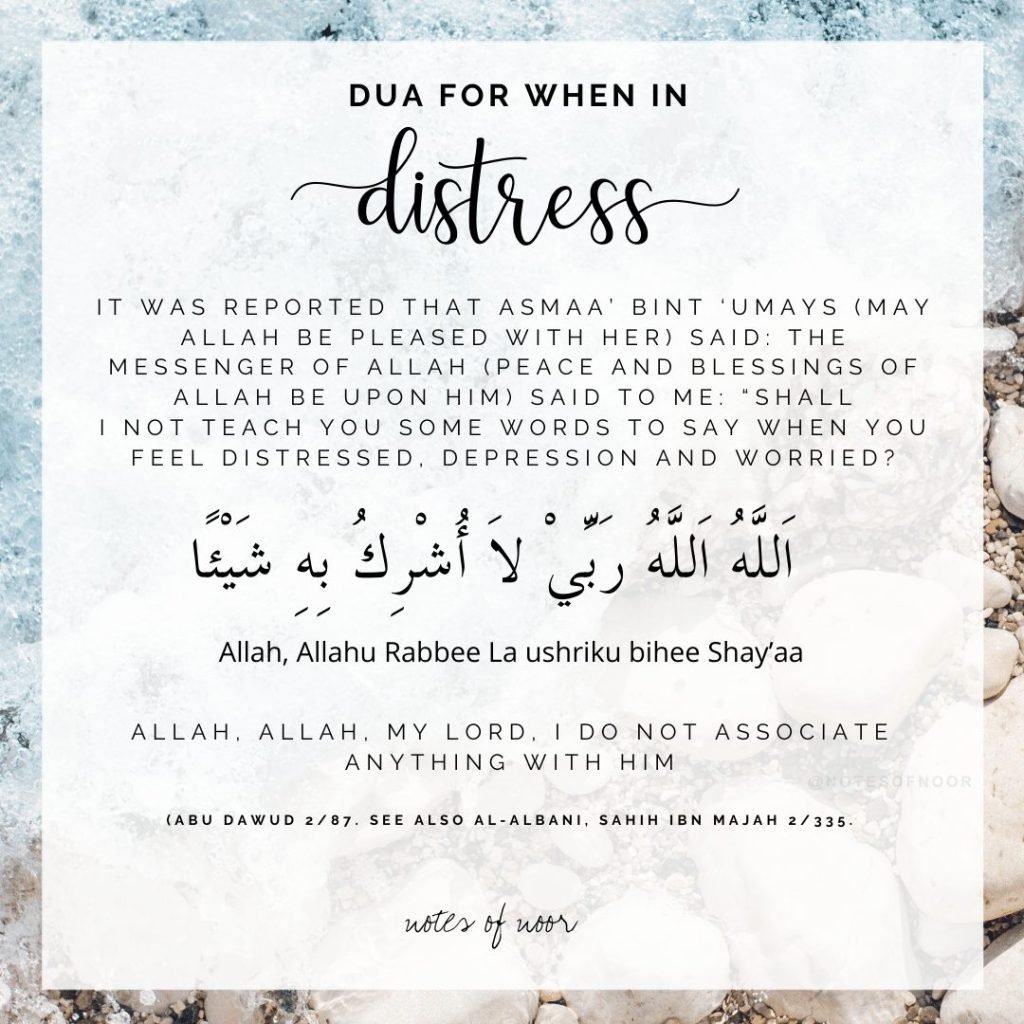 DUA FOR WHEN IN
distress
IT WAS REPORTED THAT ASMAA’ BINT ‘UMAYS (MAY
ALLAH BE PLEASED WITH HER) SAID: THE
MESSENGER OF ALLAH (PEACE AND BLESSINGS OF
ALLAH BE UPON HIM) SAID TO ME: “SHALL
I NOT TEACH YOU SOME WORDS TO SAY WHEN YOU
FEEL DISTRESSED, DEPRESSION AND WORRIED?
اَللَّهُ اَللَّهُ رَبِّيْ لاَ أُشْرِكُ بِهِ شَيْئًا
Allah, Allahu Rabbee La ushriku bihee Shay’aa
ALLAH, ALLAH, MY LORD, I DO NOT ASSOCIATE
ANYTHING WITH HIM
@NOTESOFNOOR
(ABU DAWUD 2/87. SEE ALSO AL-ALBANI, SAHIH IBN MAJAH 2/335.
notes of noor